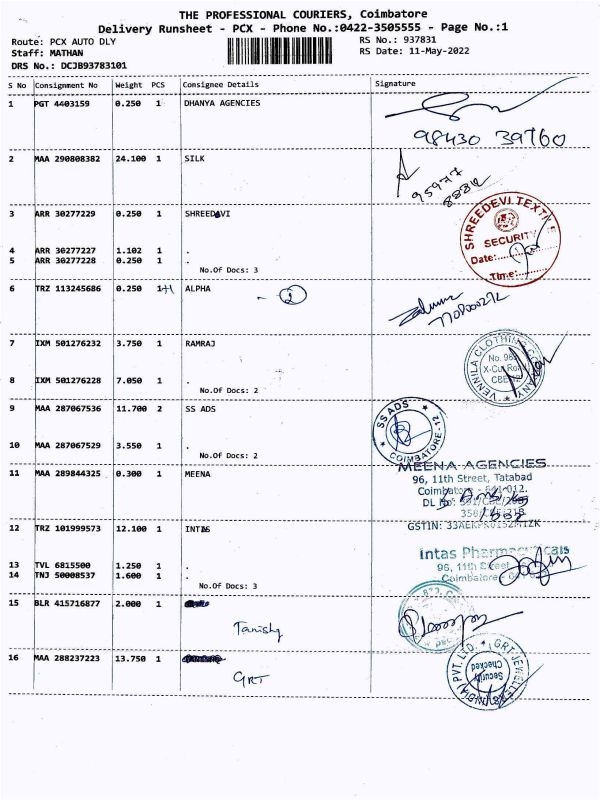 THE PROFESSIONAL COURIERS, Coimbatore
Delivery Runsheet - PCX - Phone No.:0422-3505555 - Page No.:1
Route: PCX AUTO DLY RS No.: 937831
Staff: MATHAN RS Date: 11-May-2022
DRS No.: DCJB93783101
S No Consignment No Weight PCS Consignee Details Signature
1 PGT 4403159 0.250 1 DHANYA AGENCIES
98430 39760
2 MAA 290808382 24.100 1 SILK
95977
3 ARR 30277229 0.250 1 SHREEDEVI
SHREEDEVI TEXTILE
SECURITY
Date:
Time:
4 ARR 30277227 1.102 1 .
5 ARR 30277228 0.250 1 .
No.Of Docs: 3
6 TRZ 113245686 0.250 1+1 ALPHA - 2
7 IXM 501276232 3.750 1 RAMRAJ
VENNILA CLOTHING COMPANY
X-Cut Road
8 IXM 501276228 7.050 1 .
No.Of Docs: 2
9 MAA 287067536 11.700 2 SS ADS
SS ADS
COIMBATORE-12
10 MAA 287067529 3.550 1 .
No.Of Docs: 2
11 MAA 289844325 0.300 1 MEENA
MEENA AGENCIES
96, 11th Street, Tatabad
Coimbatore - 641 012.
DL No
GSTIN:
12 TRZ 101999573 12.100 1 INTAS
Intas Pharmaceuticals
96, 11th Street
Coimbatore
13 TVL 6815500 1.250 1 .
14 TNJ 50008537 1.600 1 .
No.Of Docs: 3
15 BLR 415716877 2.000 1
Tanishq
16 MAA 288237223 13.750 1
GRT
GRT JEWELLERS (INDIA) PVT. LTD.
Security
Checked